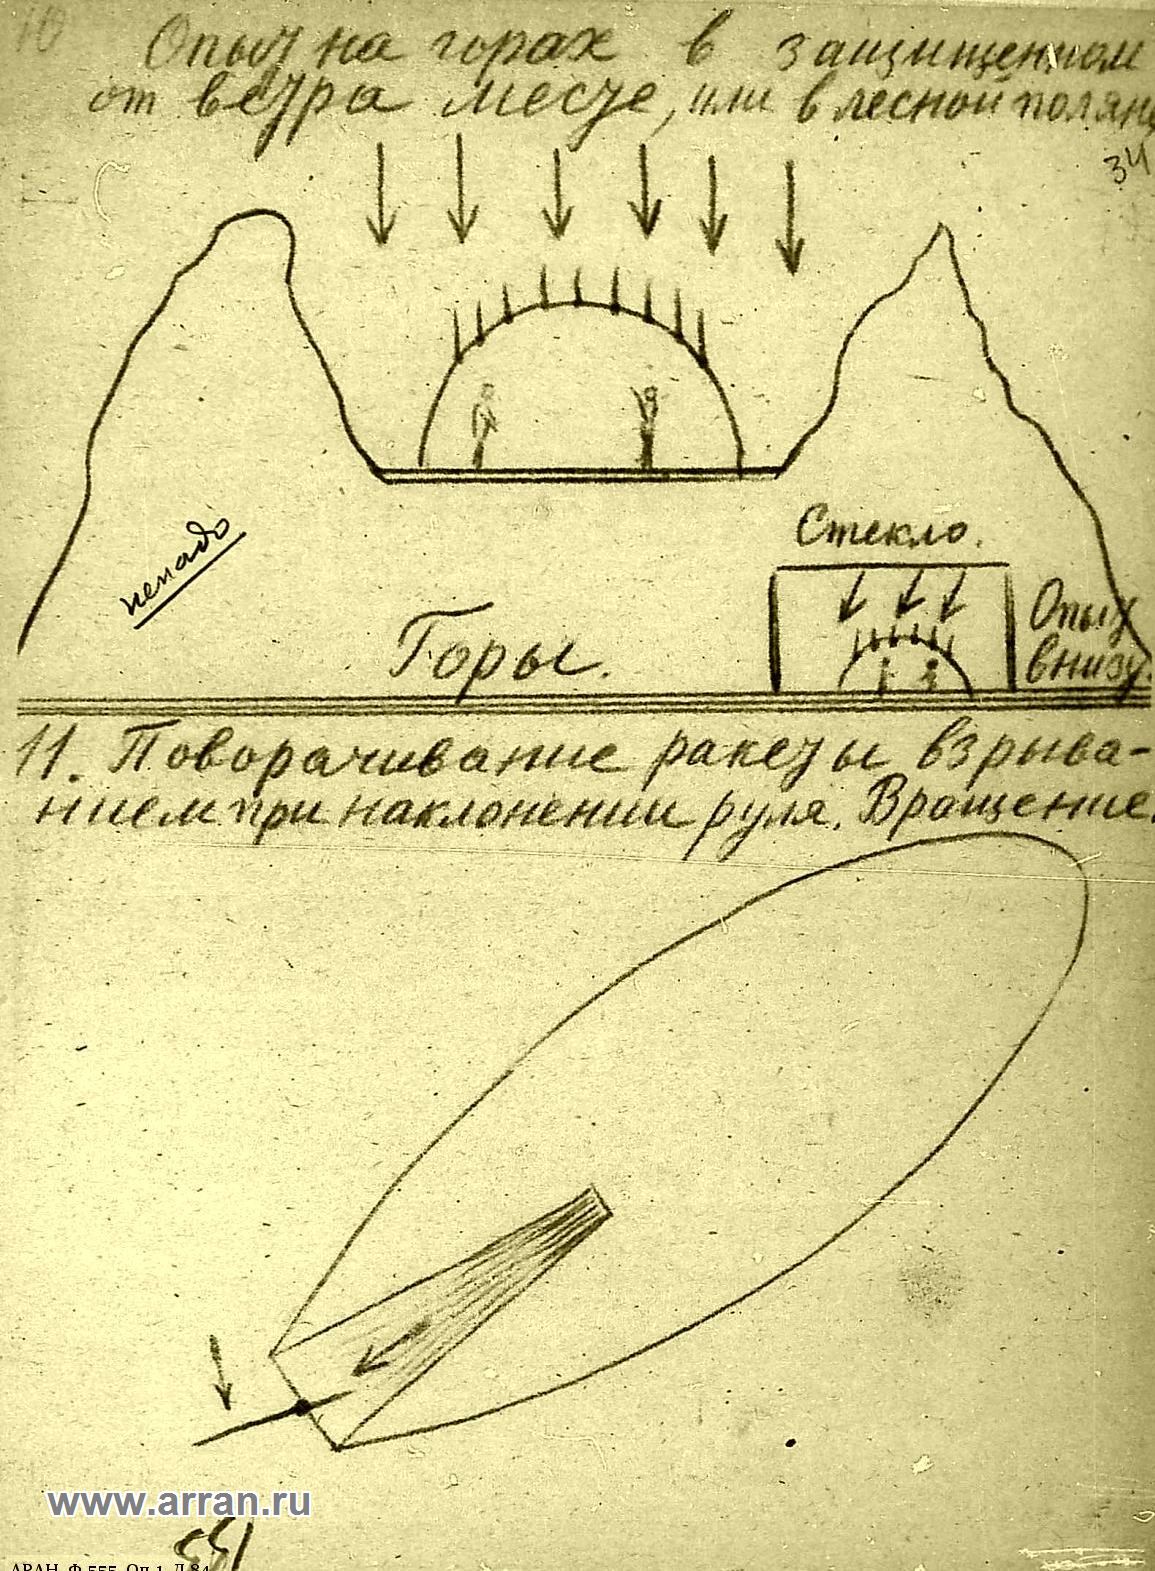 10 Опыт на горах в защищенном
от ветра месте, или в лесной поляне
34
Стекло.
ненадо
Опыт
внизу.
Горы.
11. Поворачивание ракеты взрыва-
нием при наклонении руля. Вращение.
www.arran.ru
АРАН. Ф.555. Оп.1. Д.84